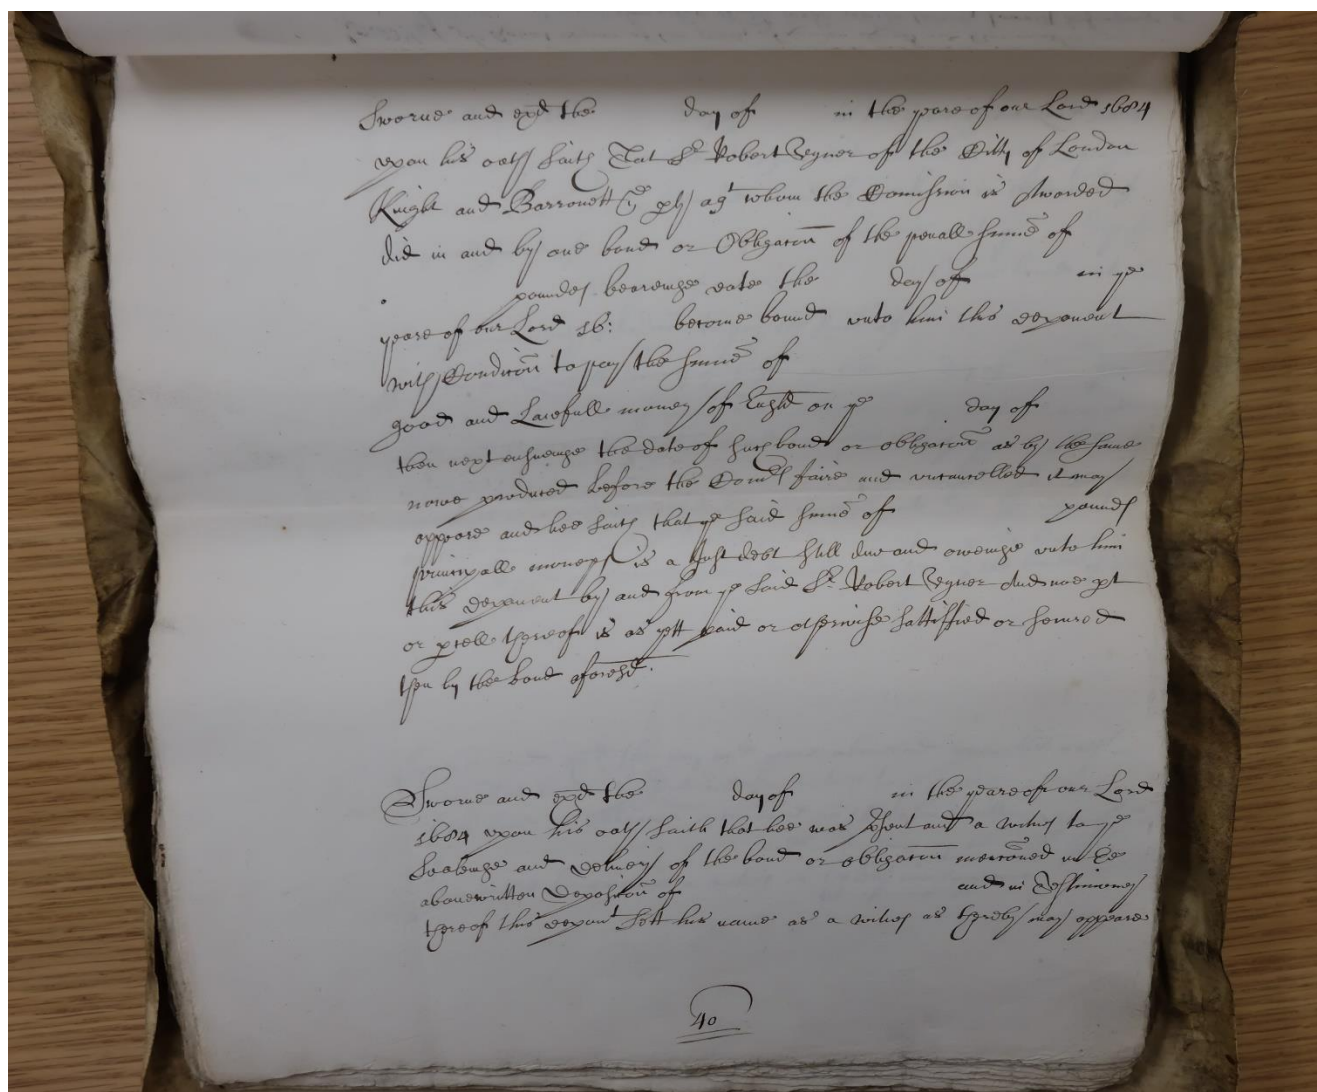 Sworne and exd the day of in the yeare of our Lord 1684
upon his oath saith That Sr Robert Vyner of the Citty of London
Knight and Barronett ye pty agt whom the Comission is Awarded
did in and by one bond or Obligacon of the penall sume of
pounds beareinge date the day of in ye
yeare of our Lord 16: become bound unto him this deponent
with Condicon to pay the sume of
good and Lawfull money of Engld on ye day of
then next ensueinge the date of such bond or obligacon as by the same
nowe produced before the Comrs faire and uncancelled it may
appeare and hee saith that ye said sume of pounds
principall moneys is a just debt still due and oweinge unto him
this deponent by and from ye said Sr Robert Vyner And noe pt
or pcell thereof is as yett paid or otherwise sattisfied or secured
then by the bond aforesd.
Sworne and exd the day of in the yeare of our Lord
1684 upon his oath saith that hee was psent and a witnes to ye
Sealeinge and delivery of the bond or obligacon menconed in the
abovewritten deposicon of and in Testimoney
thereof this depont sett his name as a witnes as thereby may appeare
40